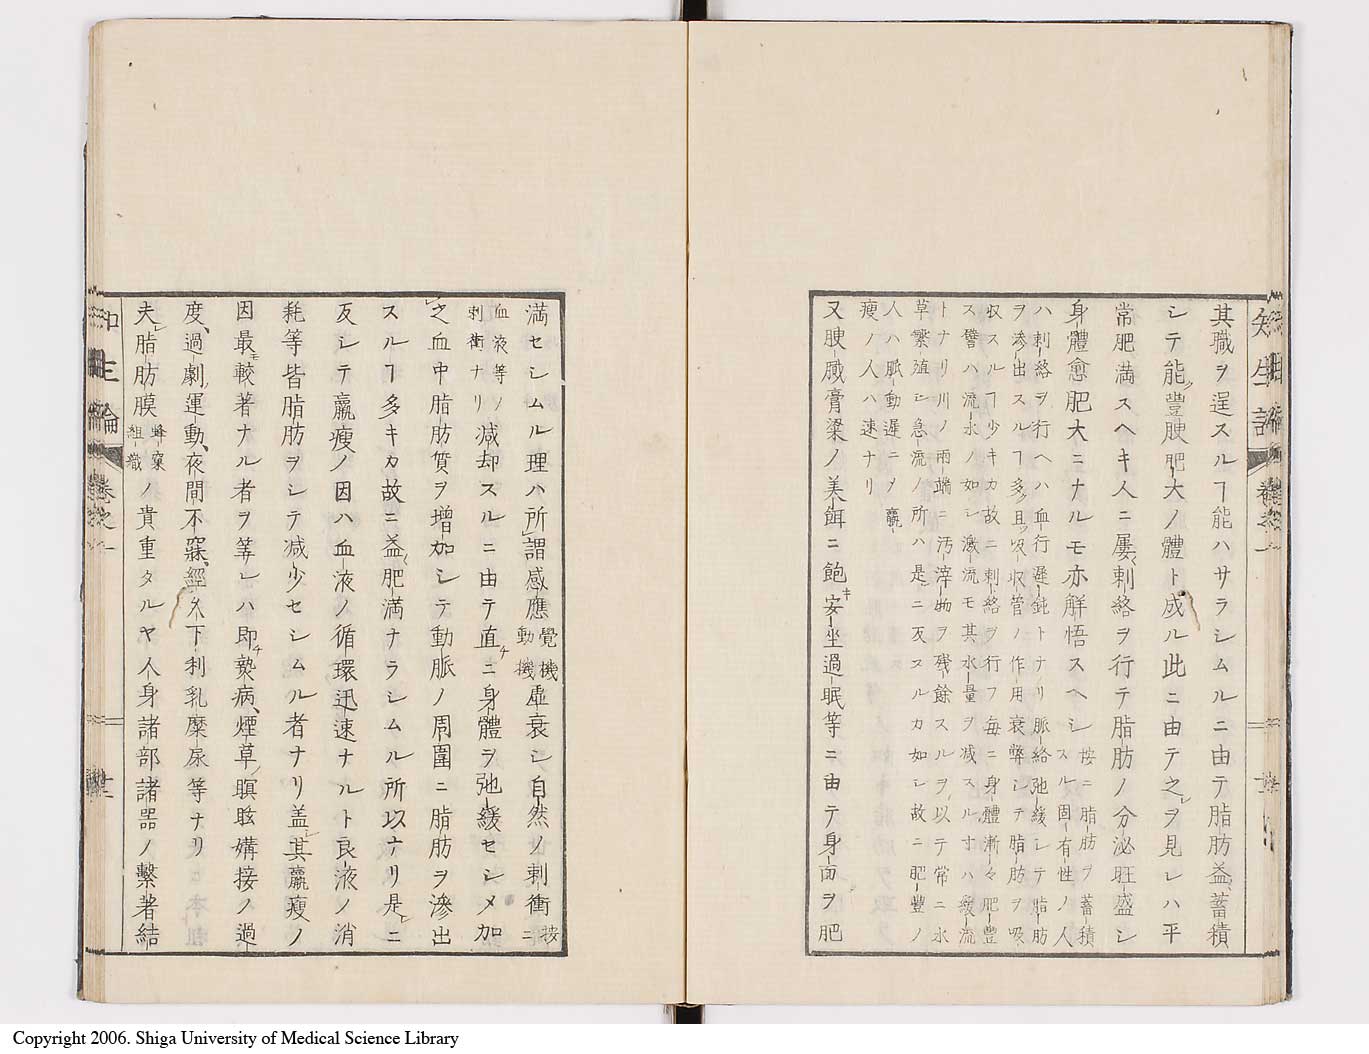 其職ヲ逞スルヿ能ハサラシムルニ由テ脂肪益蓄積
シテ能豐腴肥大ノ體ト成ル此ニ由テ之ヲ見レハ平
常肥滿スヘキ人ニ屢刺絡ヲ行テ脂肪ノ分泌旺盛シ
身體愈肥大ニナルモ亦解悟スヘシ
按ニ脂肪ヲ蓄積
スル固有性ノ人
ハ刺絡ヲ行ヘハ血行遲鈍トナリ脈絡弛緩シテ脂肪
ヲ滲出スルヿ多ク且吸収管ノ作用衰弊シテ脂肪ヲ吸
収スルヿ少キカ故ニ刺絡ヲ行フ每ニ身體漸々肥豐
ス譬ハ流水ノ如シ激流モ其水量ヲ減スル寸ハ緩流
トナリ川ノ兩端ニ汚滓物ヲ殘餘スルヲ以テ常ニ水
草繁殖シ急流ノ所ハ是ニ反スルカ如シ故ニ肥豐ノ
人ハ脈動遲ニメ羸
瘦ノ人ハ速ナリ
又腴膩膏粱ノ美餌ニ飽キ安坐過眠等ニ由テ身面ヲ肥
滿セシムル理ハ所謂感應
覺機
動機
虛衰シ自然ノ刺衝
按ニ
血液等ノ
刺衝ナリ
減却スルニ由テ直チニ身體ヲ弛緩セシメ加
之血中脂肪質ヲ增加シテ動脈ノ周圍ニ脂肪ヲ滲出
スルヿ多キカ故ニ益肥滿ナラシムル所以ナリ是ニ
反シテ羸瘦ノ因ハ血液ノ循環迅速ナルト良液ノ消
耗等皆脂肪ヲシテ減少セシムル者ナリ盖シ其羸瘦ノ
因最モ較著ナル者ヲ等レハ即チ熱病、煙草ノ瞑眩媾接ノ過
度、過劇ノ運動、夜間不寐、經久下利乳糜尿等ナリ
夫レ脂肪膜
蜂窠
組織
ノ貴重タルヤ人身諸部諸器ノ繫著結
知生論
卷之一
Copyright 2006. Shiga University of Medical Science Library